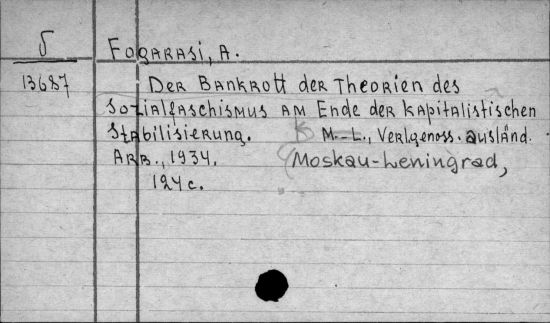 δ Fogarasi, A.
13687 Der Bankrott der Theorien des
Sozialfaschismus am Ende der kapitalistischen
Stabilisierung. M.-L., Verlgenoss. ausländ.
Arb., 1934. (Moskau-Leningrad,
124 c.